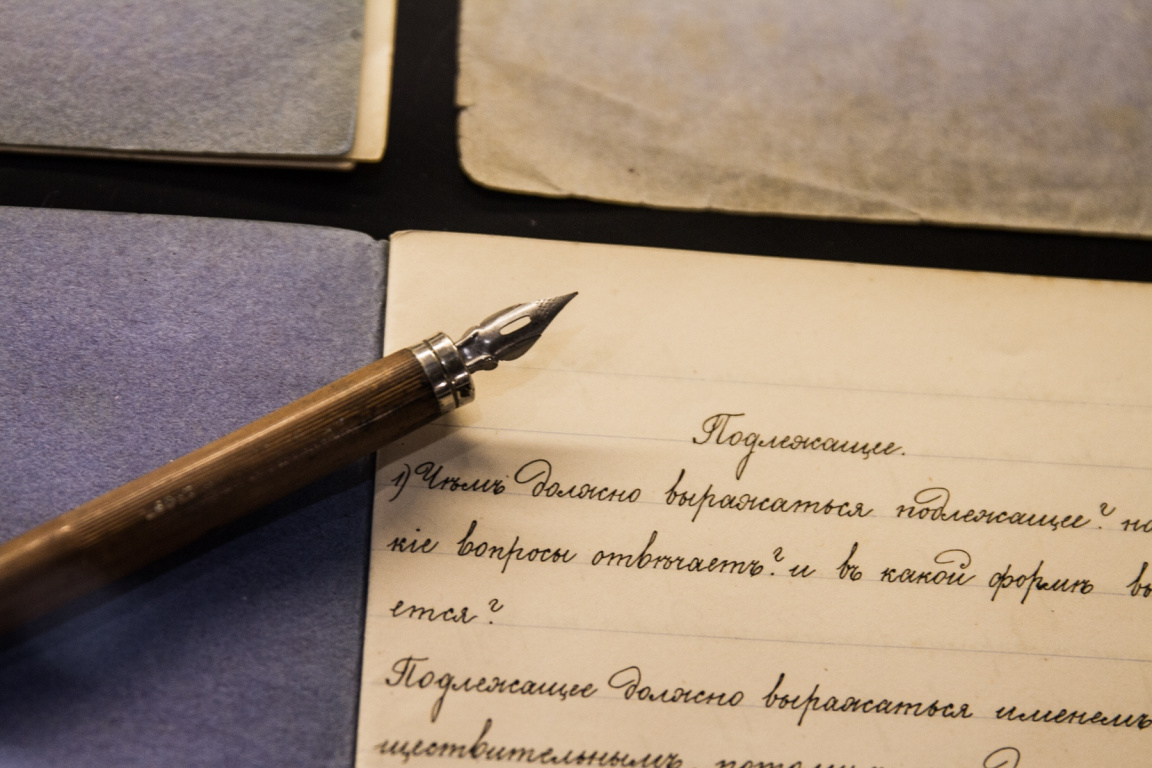 Подлежащее.
1) Чѣмъ должно выражаться подлежащее? на
кіе вопросы отвѣчаетъ? и въ какой формѣ вы
ется?
Подлежащее должно выражаться именемъ
ществительнымъ, потому